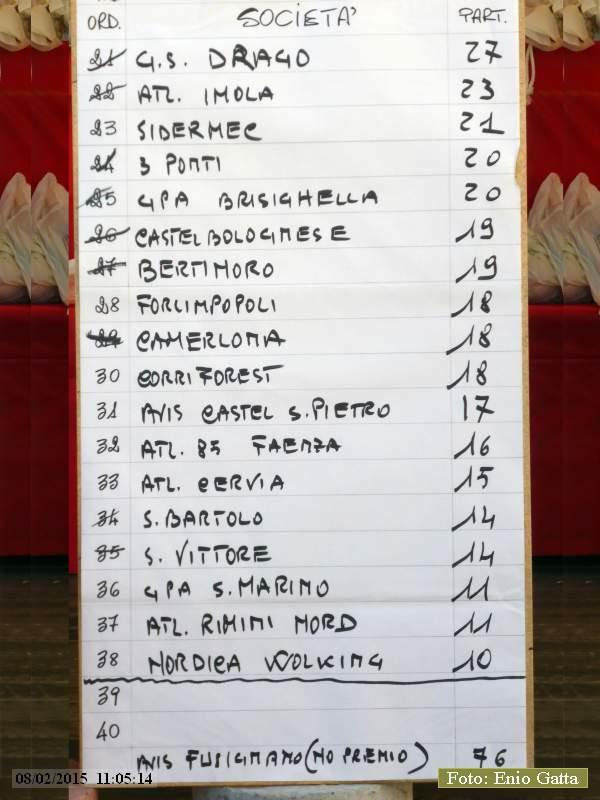 ORD. SOCIETA' PART.
21 G.S. DRAGO 27
22 ATL. IMOLA 23
23 SIDERMEC 21
24 3 PONTI 20
25 GPA BRISIGHELLA 20
26 CASTELBOLOGNESE 19
27 BERTINORO 19
28 FORLIMPOPOLI 18
29 CAMERLONA 18
30 CORRIFOREST 18
31 AVIS CASTEL S.PIETRO 17
32 ATL. 85 FAENZA 16
33 ATL. CERVIA 15
34 S. BARTOLO 14
35 S. VITTORE 14
36 GPA S. MARINO 11
37 ATL. RIMINI NORD 11
38 NORDICA WOLKING 10
39
40
AVIS FUSIGNANO (NO PREMIO) 76
08/02/2015 11:05:14
Foto: Enio Gatta